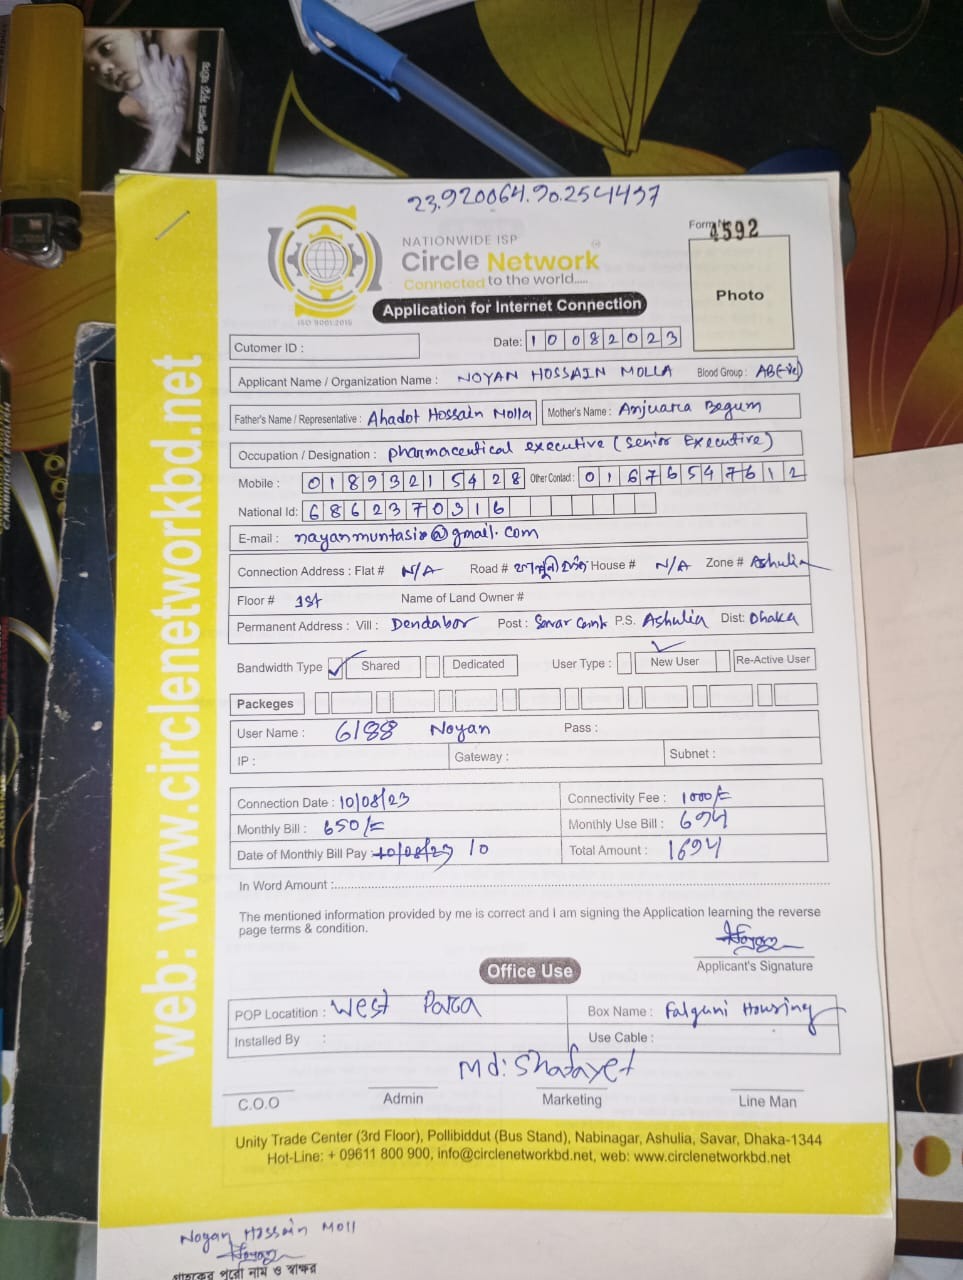 23.920064.90.254497
NATIONWIDE ISP
Circle Network
Connected to the world.....
ISO 9001:2015
Form No
4592
Photo
Application for Internet Connection
Cutomer ID :
Date: 10082023
Applicant Name / Organization Name : NOYAN HOSSAIN MOLLA Blood Group : AB(+ve)
Father's Name / Representative : Ahadot Hossain Molla Mother's Name : Anjuara Begum
Occupation / Designation : pharmaceutical executive (senior Executive)
Mobile : 01893215428 Other Contact : 01676547612
National Id: 6862370316
E-mail : nayanmuntasir@gmail.com
Connection Address : Flat # N/A Road # House # N/A Zone # Ashulia
Floor # 1st Name of Land Owner #
Permanent Address : Vill : Dendabor Post : Savar Cantt P.S. Ashulia Dist: Dhaka
Bandwidth Type Shared Dedicated User Type : New User Re-Active User
Packeges
User Name : 6188 Noyan Pass :
IP : Gateway : Subnet :
Connection Date : 10/08/23 Connectivity Fee : 1000/=
Monthly Bill : 650/= Monthly Use Bill : 694
Date of Monthly Bill Pay : 10/08/23 10 Total Amount : 1694
In Word Amount :
The mentioned information provided by me is correct and I am signing the Application learning the reverse
page terms & condition.
Applicant's Signature
Office Use
POP Locatition : West Para Box Name : Falguni Housing
Installed By : Use Cable :
Md: Shafayet
C.O.O Admin Marketing Line Man
Unity Trade Center (3rd Floor), Pollibiddut (Bus Stand), Nabinagar, Ashulia, Savar, Dhaka-1344
Hot-Line: + 09611 800 900, info@circlenetworkbd.net, web: www.circlenetworkbd.net
web: www.circlenetworkbd.net
Noyan Hossain Moll
গ্রাহকের পুরো নাম ও স্বাক্ষর